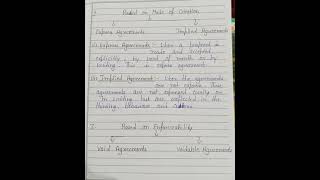 Based on Mode of Creation
Express Agreements Implied Agreements
(i) Express Agreements :- When a
made and
explicitly, by word of mouth or by
writing. This is express agreement.
(ii) Implied Agreement :- When the agreements
are not express. These
agreements are not expressed orally or
in writing but are reflected in the
and
Based on Enforceability
Void Agreements Voidable Agreements